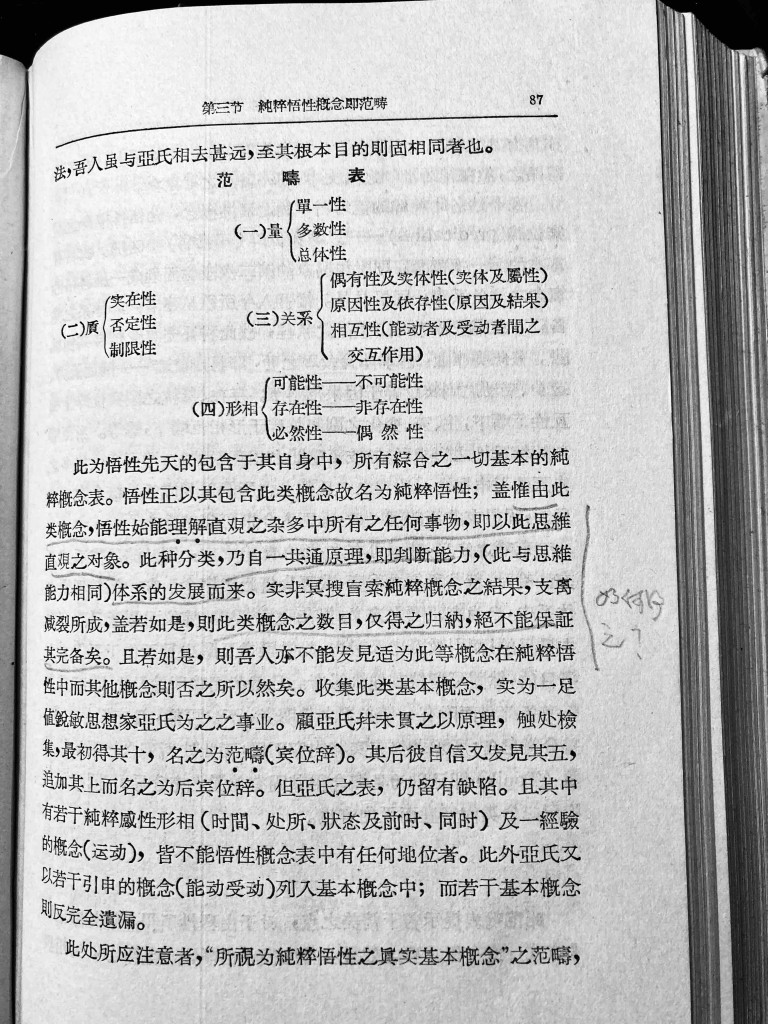 第三节　純粹悟性概念即范疇　87
法,吾人虽与亞氏相去甚远,至其根本目的則固相同者也。
范　疇　表
(一)量
單一性
多数性
总体性
(二)质
实在性
否定性
制限性
(三)关系
偶有性及实体性(实体及屬性)
原因性及依存性(原因及結果)
相互性(能动者及受动者間之
交互作用)
(四)形相
可能性——不可能性
存在性——非存在性
必然性——偶然性
此为悟性先天的包含于其自身中，所有綜合之一切基本的純
粹概念表。悟性正以其包含此类概念故名为純粹悟性；盖惟由此
类概念,悟性始能理解直观之杂多中所有之任何事物,即以此思維
直观之对象。此种分类,乃自一共通原理,即判断能力,(此与思維
能力相同)体系的发展而来。实非冥搜盲索純粹概念之結果,支离
减裂所成,盖若如是,則此类概念之数目,仅得之归納,絕不能保証
其完备矣。且若如是，則吾人亦不能发見适为此等概念在純粹悟
性中而其他概念則否之所以然矣。收集此类基本概念，实为一足
值銳敏思想家亞氏为之之事业。顧亞氏幷未貫之以原理，触处檢
集,最初得其十，名之为范疇(宾位辞)。其后彼自信又发見其五,
追加其上而名之为后宾位辞。但亞氏之表，仍留有缺陷。且其中
有若干純粹感性形相(时間、处所、狀态及前时、同时)及一經驗
的概念(运动)，皆不能悟性概念表中有任何地位者。此外亞氏又
以若干引申的概念(能动受动)列入基本概念中；而若干基本概念
則反完全遺漏。
此处所应注意者,“所視为純粹悟性之眞实基本概念”之范疇,